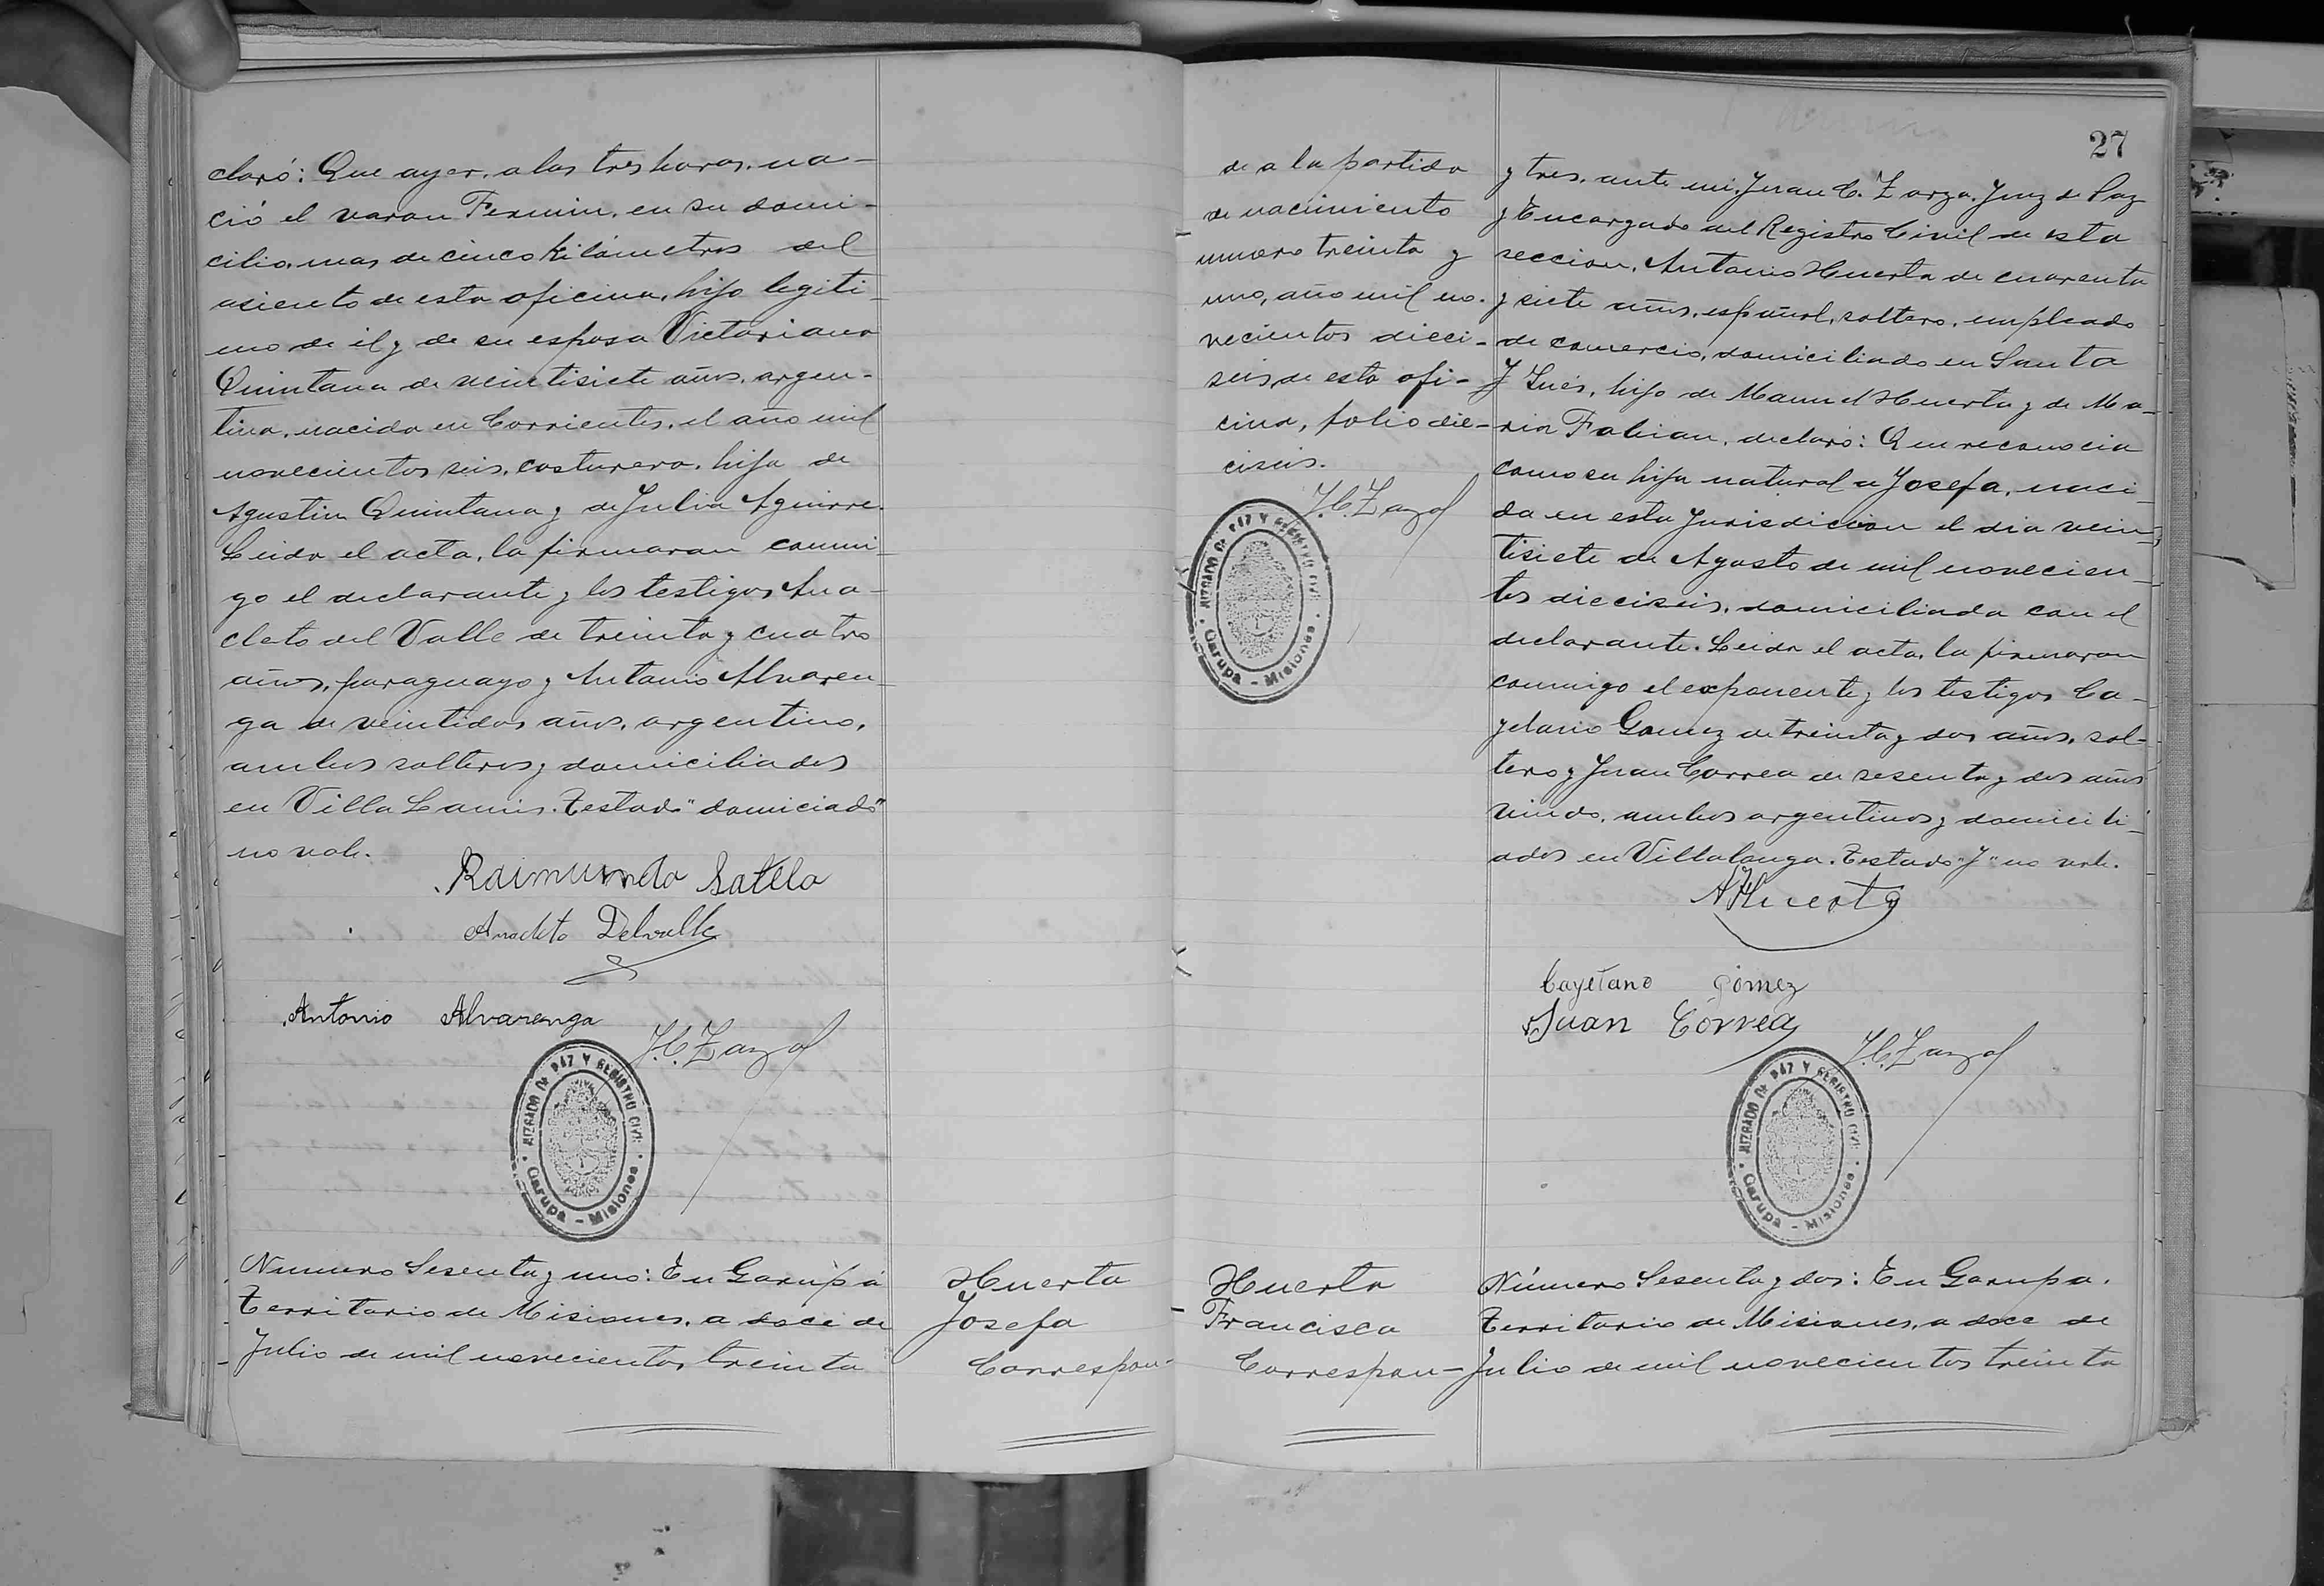 claró: Que ayer, a las tres horas, na-
ció el varon Fermin, en su domi-
cilio, mas de cinco kilómetros del
asiento de esta oficina, hijo legiti-
mo de él y de su esposa Victoriana
Quintana de veintisiete años, argen-
tina, nacida en Corrientes, el año mil
novecientos seis, costurera, hija de
Agustin Quintana y de Julia Aguirre.
Leida el acta, la firmaron conmi-
go el declarante y los testigos Ana-
cleto del Valle de treinta y cuatro
años, paraguayo y Antonio Alvaren-
ga de veintidos años, argentino,
ambos solteros y domiciliados
en Villa Lanus. Testado "domiciado"
no vale.
Raimundo Satelo
Anacleto Delvalle
Antonio Alvarenga
J.C. Zarza
JUZGADO DE PAZ Y REGISTRO CIVIL
Garupa - Misiones
Número Sesenta y uno: En Garupá
Territorio de Misiones, a doce de
Julio de mil novecientos treinta
Huerta
Josefa
Correspon-
27
de a la partida
de nacimiento
número treinta y
uno, año mil no-
vecientos dieci-
seis de esta ofi-
cina, folio die-
ciseis.
J.C. Zarza
JUZGADO DE PAZ Y REGISTRO CIVIL
Garupa - Misiones
y tres, ante mi, Juan C. Zarza, Juez de Paz
y Encargado del Registro Civil de esta
seccion, Antonio Huerta de cuarenta
y siete años, español, soltero, empleado
de comercio, domiciliado en Santa
J Inés, hijo de Manuel Huerta y de Ma-
ria Fabian, declaró: Que reconocia
como su hija natural a Josefa, naci-
da en esta Jurisdiccion el dia vein-
tisiete de Agosto de mil novecien-
tos dieciseis, domiciliada con el
declarante. Leida el acta, la firmaron
conmigo el exponente y los testigos Ca-
yetano Gomez de treinta y dos años, sol-
tero y Juan Correa de sesenta y dos años
viudo, ambos argentinos y domicili-
ados en Villalonga. Testado "J" no vale.
A Huerta
Cayetano Gómez
Juan Correa
J.C. Zarza
JUZGADO DE PAZ Y REGISTRO CIVIL
Garupa - Misiones
Huerta
Francisca
Correspon-
Número Sesenta y dos: En Garupa,
Territorio de Misiones, a doce de
Julio de mil novecientos treinta